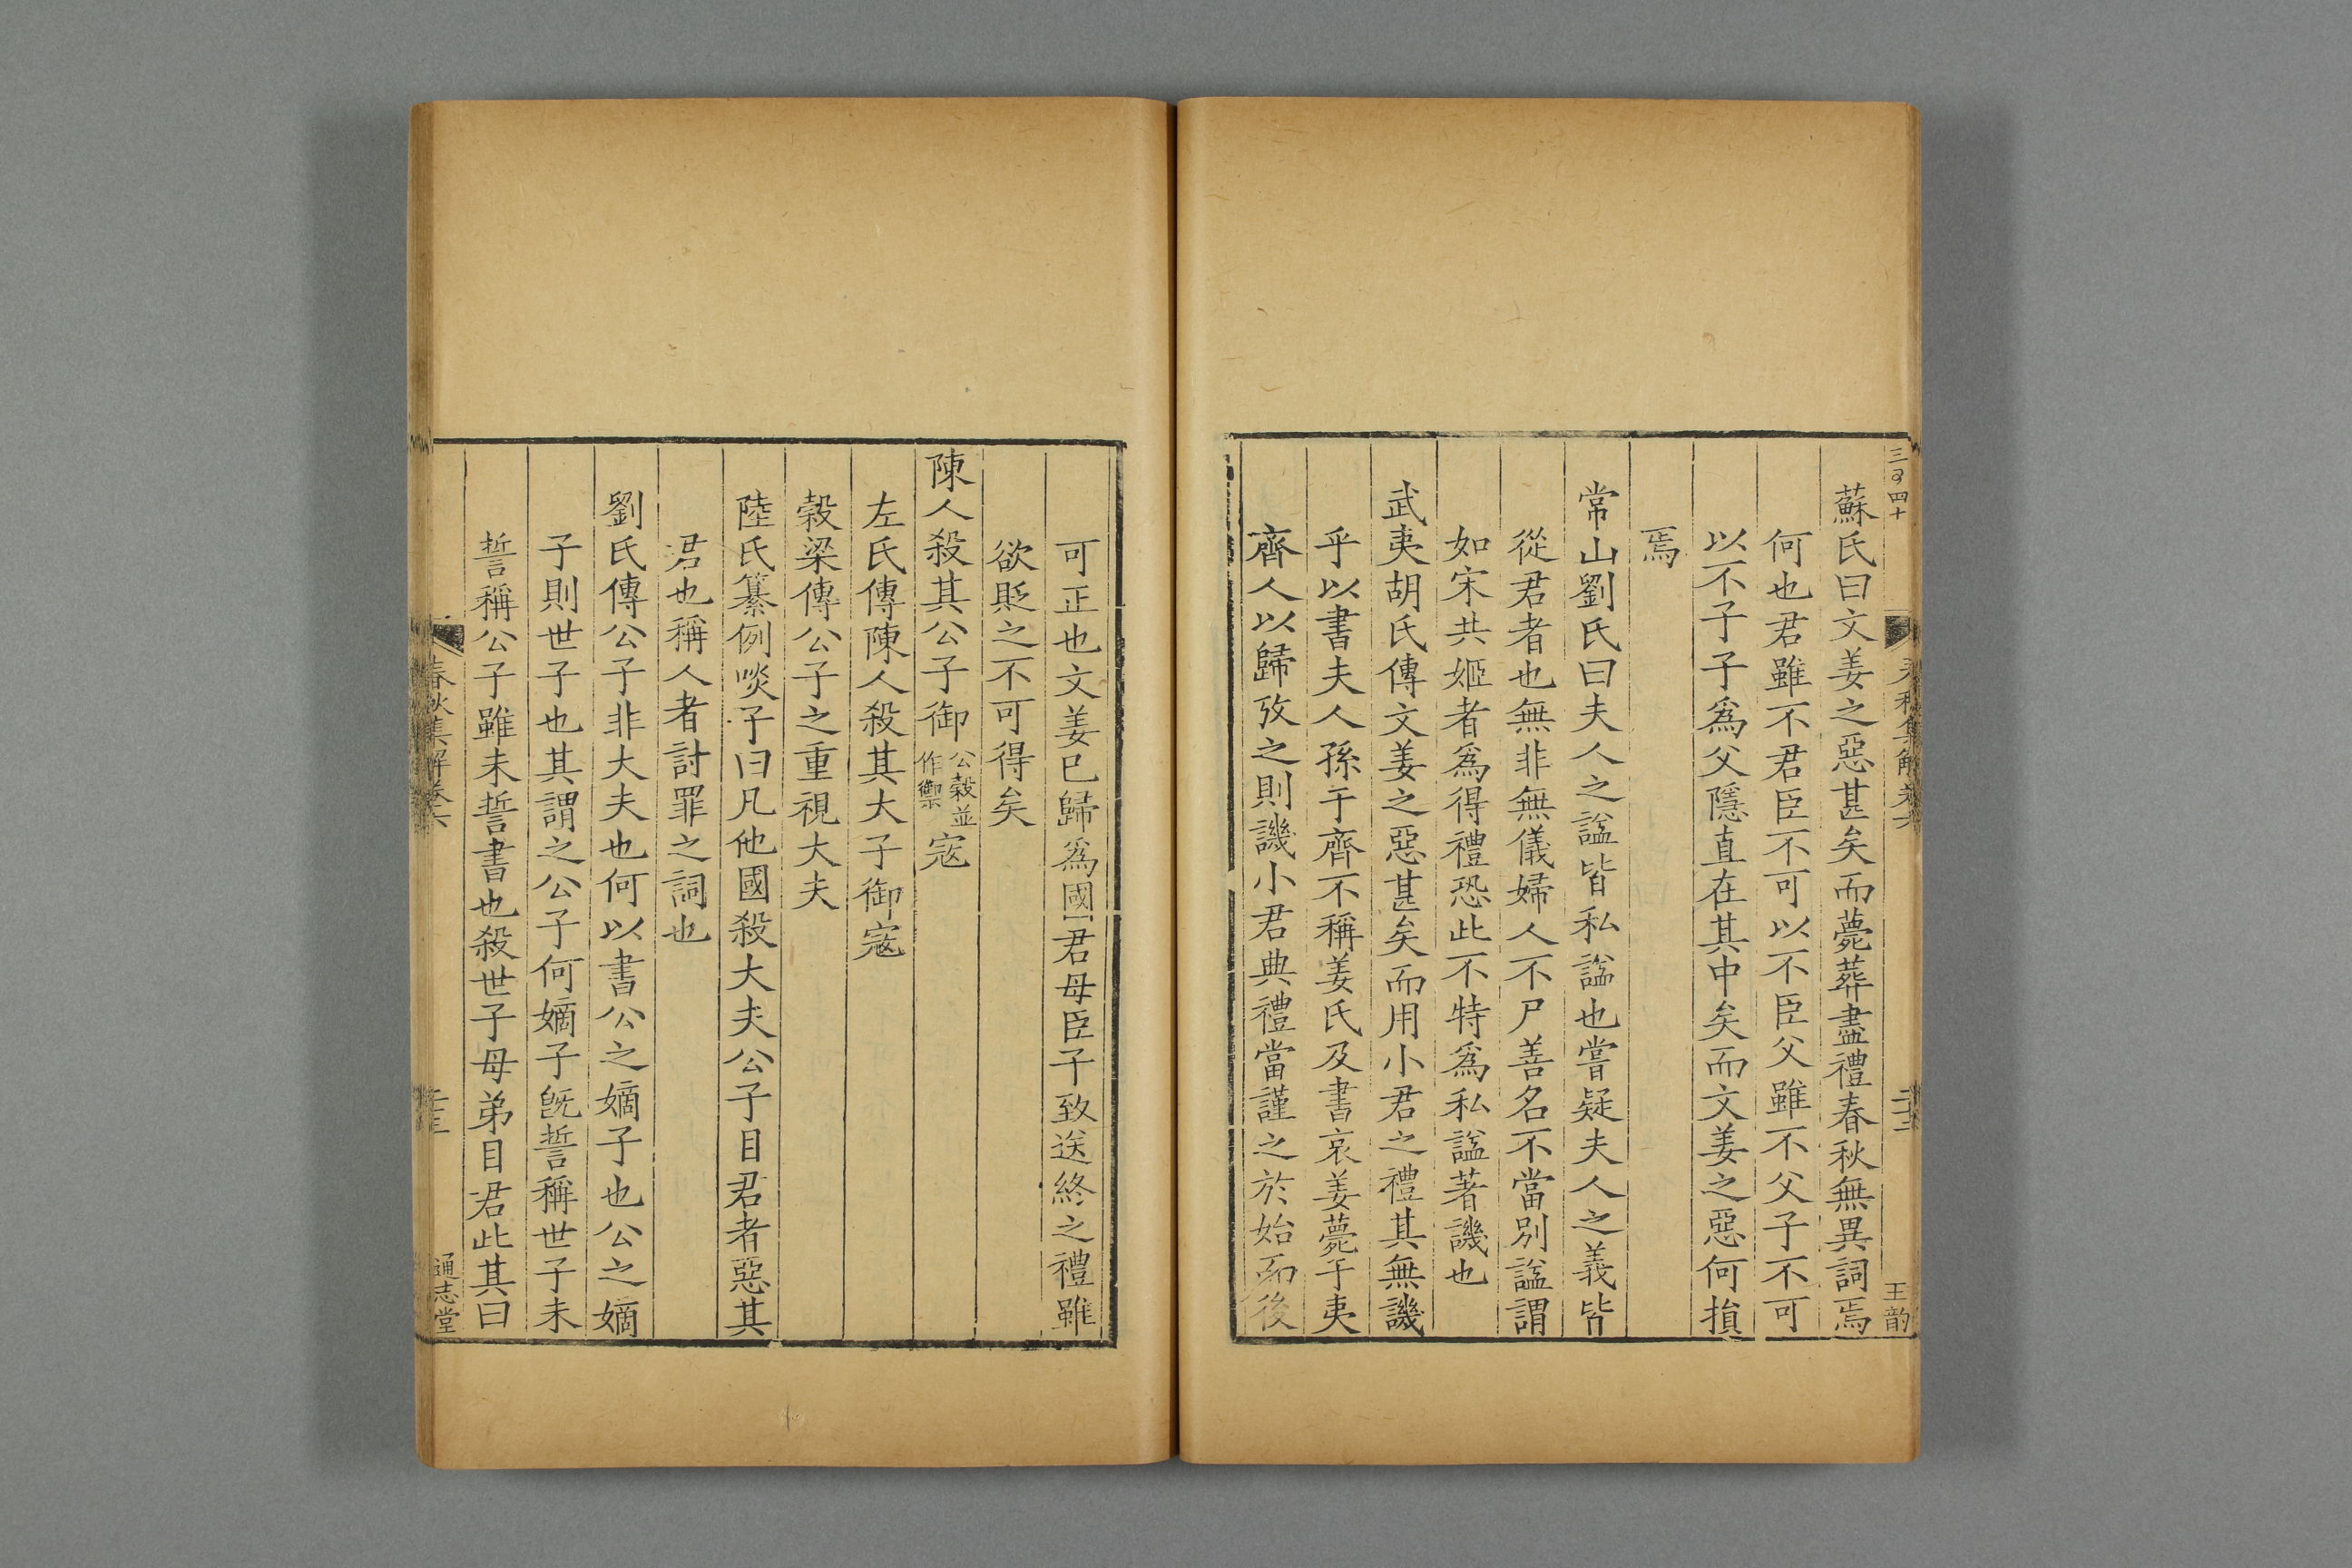 三百四十
春秋集解卷六
二十二
王韵
蘇氏曰文姜之惡甚矣而薨葬盡禮春秋無異詞焉
何也君雖不君臣不可以不臣父雖不父子不可
以不子子爲父隱直在其中矣而文姜之惡何損
焉
常山劉氏曰夫人之諡皆私諡也嘗疑夫人之義皆
從君者也無非無儀婦人不尸善名不當別諡謂
如宋共姬者爲得禮恐此不特爲私諡著譏也
武夷胡氏傳文姜之惡甚矣而用小君之禮其無譏
乎以書夫人孫于齊不稱姜氏及書哀姜薨于夷
齊人以歸攷之則譏小君典禮當謹之於始而後
可正也文姜已歸爲國君母臣子致送終之禮雖
欲貶之不可得矣
陳人殺其公子御公穀並作禦寇
左氏傳陳人殺其大子御寇
穀梁傳公子之重視大夫
陸氏纂例啖子曰凡他國殺大夫公子目君者惡其
君也稱人者討罪之詞也
劉氏傳公子非大夫也何以書公之嫡子也公之嫡
子則世子也其謂之公子何嫡子旣誓稱世子未
誓稱公子雖未誓書也殺世子母弟目君此其曰
春秋集解卷六
通志堂